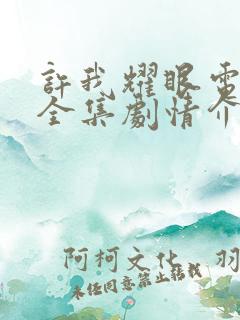 許我耀眼電
全集劇情介
阿柯文化 羽
未经同意禁止转载